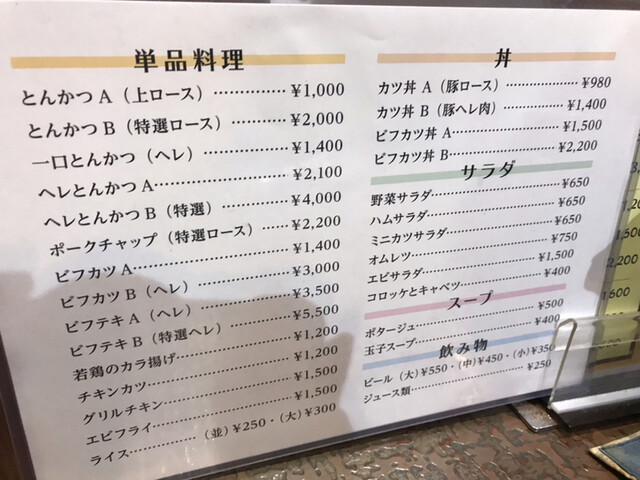 単品料理
とんかつA(上ロース)……………¥1,000
とんかつB(特選ロース)…………¥2,000
一口とんかつ(ヘレ)………………¥1,400
ヘレとんかつA………………………¥2,100
ヘレとんかつB(特選)……………¥4,000
ポークチャップ(特選ロース)…¥2,200
ビフカツA……………………………¥1,400
ビフカツB(ヘレ)…………………¥3,000
ビフテキA(ヘレ)…………………¥3,500
ビフテキB(特選ヘレ)……………¥5,500
若鶏のカラ揚げ……………………¥1,200
チキンカツ……………………………¥1,200
グリルチキン…………………………¥1,500
エビフライ……………………………¥1,500
ライス……………(並)¥250・(大)¥300
丼
カツ丼 A(豚ロース)………………¥980
カツ丼 B(豚ヘレ肉)……………¥1,400
ビフカツ丼 A………………………¥1,500
ビフカツ丼 B………………………¥2,200
サラダ
野菜サラダ……………………………¥650
ハムサラダ……………………………¥650
ミニカツサラダ………………………¥650
オムレツ………………………………¥750
エビサラダ…………………………¥1,500
コロッケとキャベツ…………………¥400
スープ
ポタージュ……………………………¥500
玉子スープ……………………………¥400
飲み物
ビール(大)¥550・(中)¥450・(小)¥350
ジュース類……………………………¥250